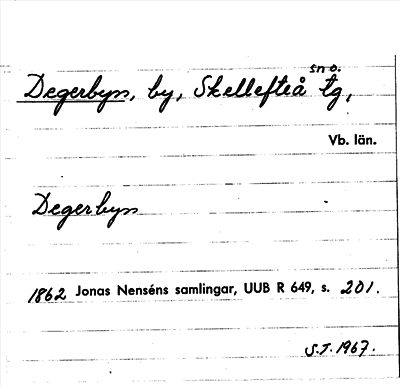 Degerbyn, by, Skellefteå sn o. tg,
Vb. län.
Degerbyn
1862 Jonas Nenséns samlingar, UUB R 649, s. 201.
S.J. 1967.